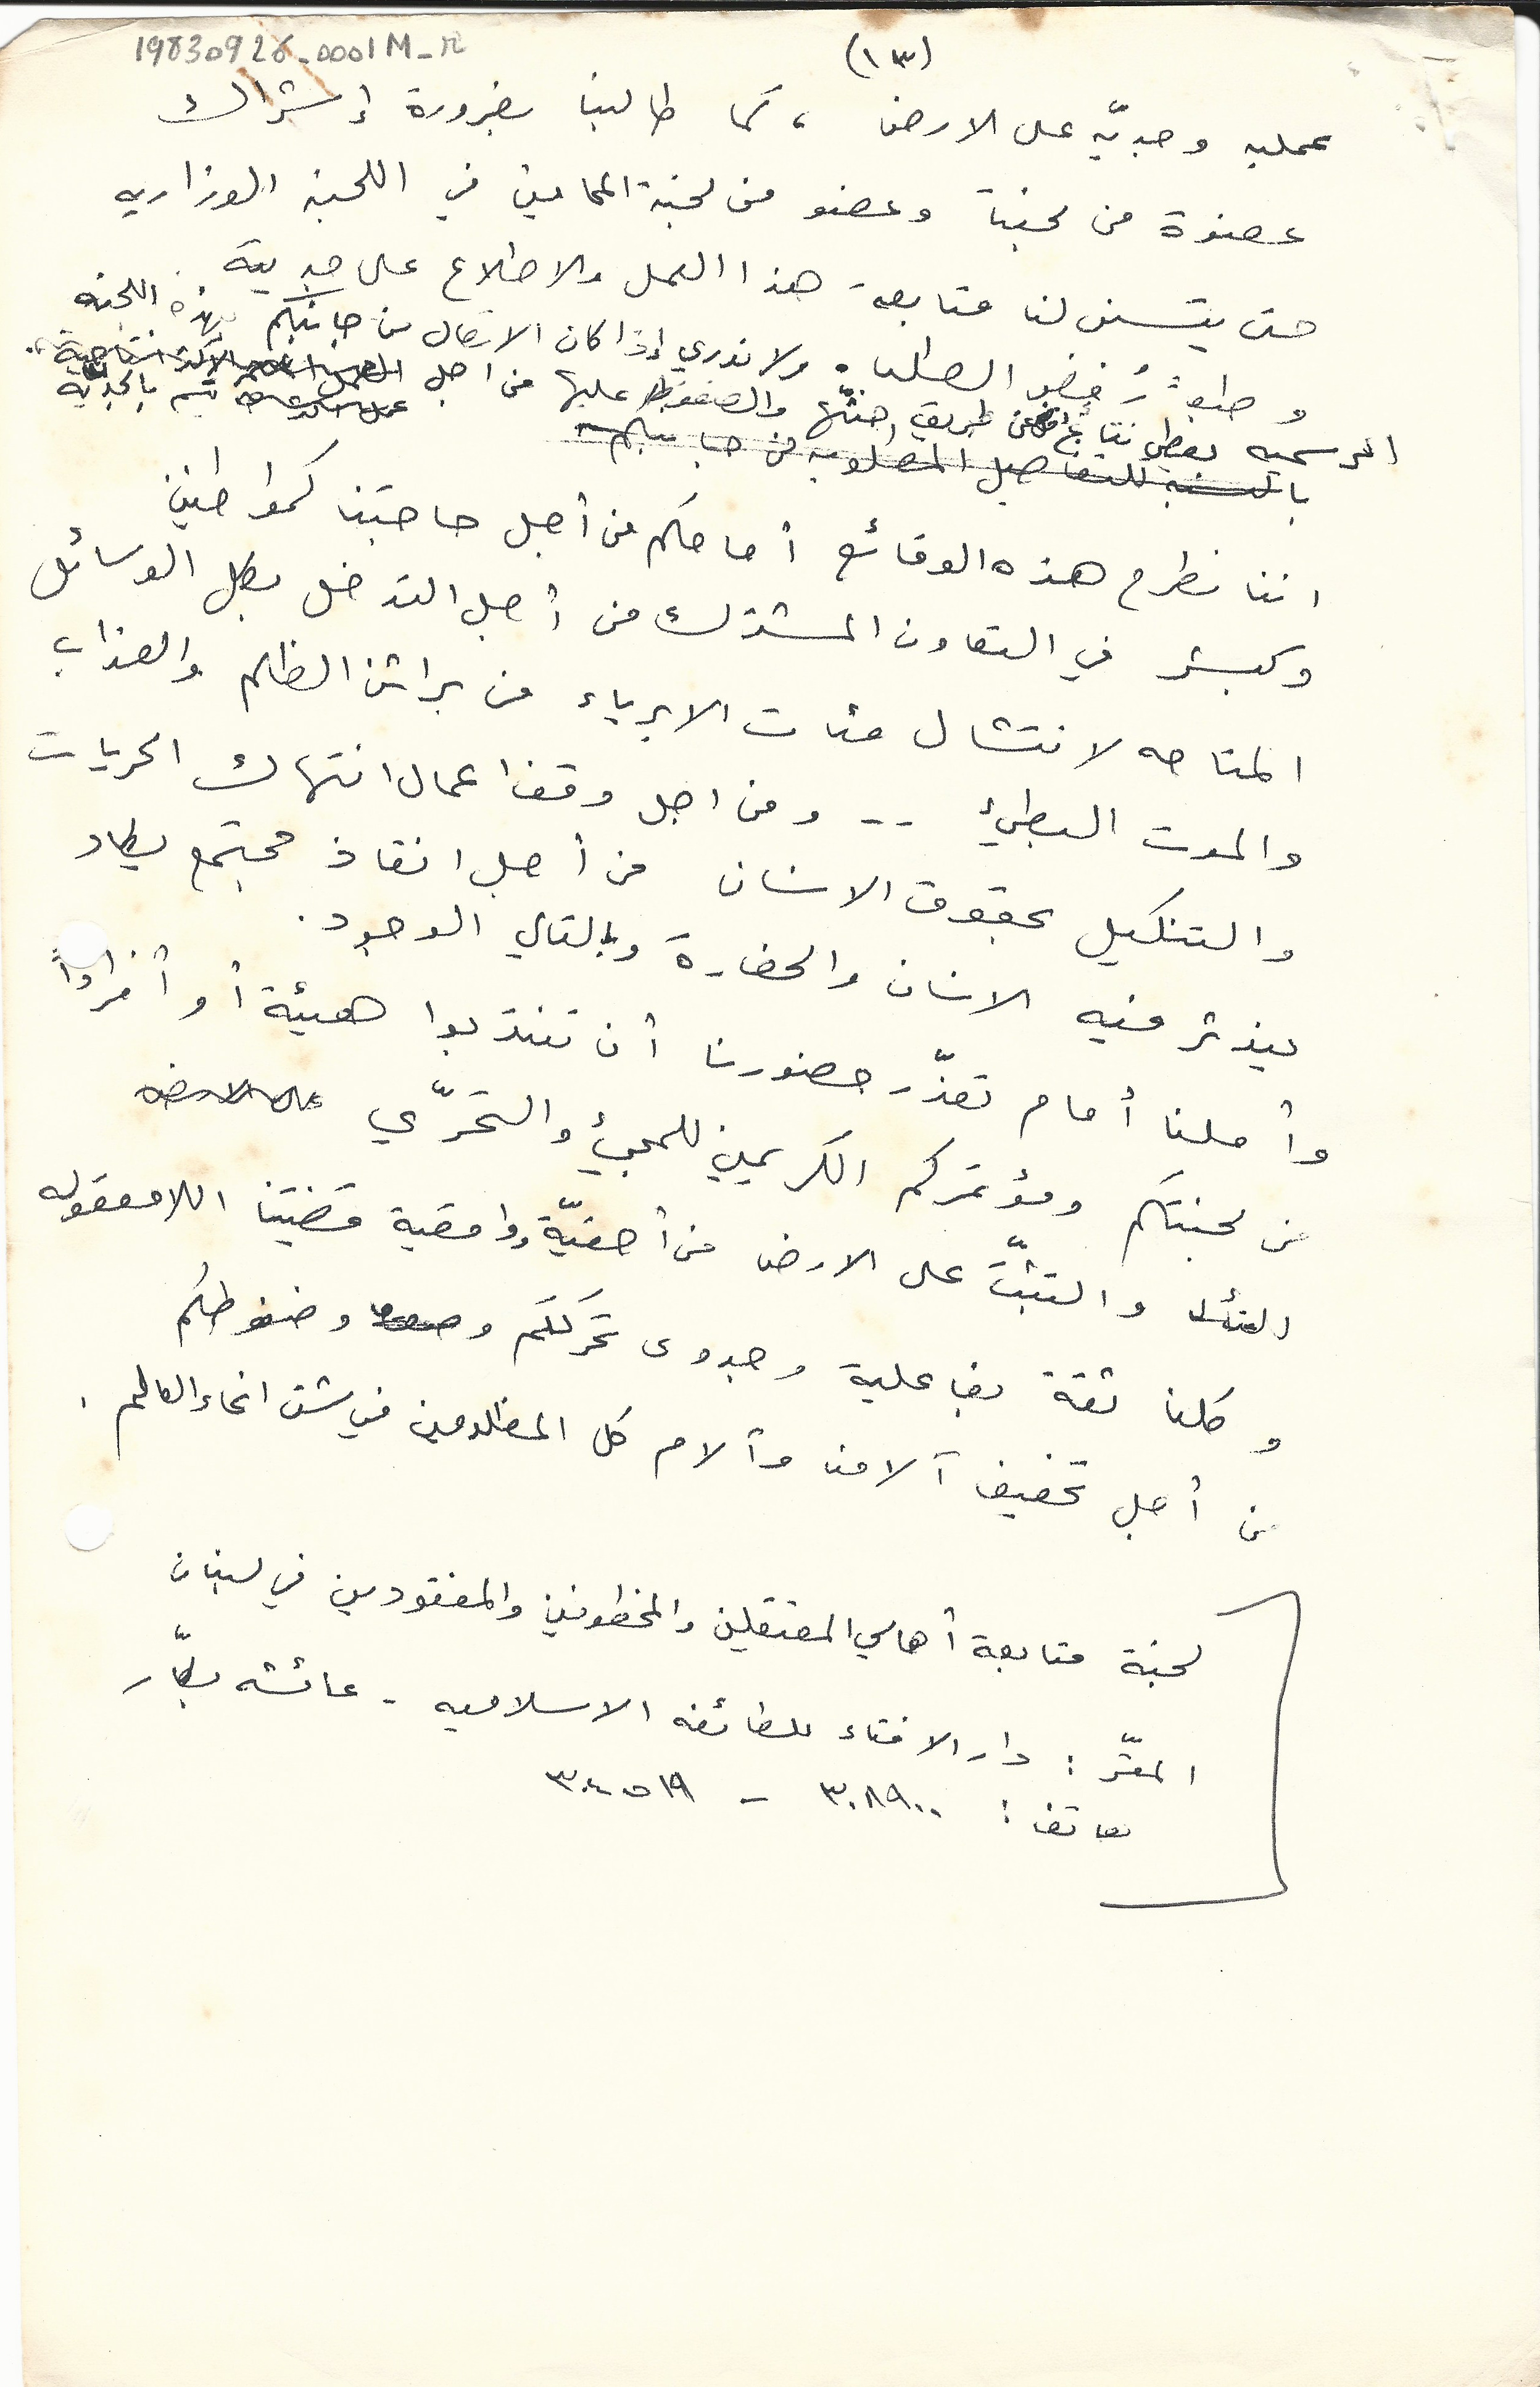 19830926_0001M_R
(١٣)
عمليه وجديّه على الارض ، كما طالبنا بضرورة إشراك
عضوة من لجنتنا وعضو من لجنة المحامين في اللجنة الوزاريه
حتى يتسنى لنا متابعة هذا العمل والاطلاع على جديته
وطبعاً رُفض الطلب . ولا ندري إذا كان الاتصال من جانبكم بهذه اللجنه
الرسميه يعطي نتائج عن طريق حثّها والضغوط عليها من اجل يتسم بالجدية
بالنسبة للتفاصيل المطلوبه من جانبكم
اننا نطرح هذه الوقائع أمامكم من أجل حاجتنا كمواطنين
وكبشر في التعاون المشترك من أجل التدخل بكل الوسائل
المتاحه لانتشال مئات الابرياء من براثن الظلم والعذاب
والموت البطيء -- ومن اجل وقف اعمال انتهاك الحريات
والتنكيل بحقوق الانسان من أجل انقاذ مجتمع يكاد
يندثر فيه الانسان والحضارة وبالتالي الوجود .
وأملنا أمام تعذّر حضورنا أن تنتدبوا هيئة أو أفراداً
من لجنتكم ومؤتمركم الكريمين للمجيء والتحرّي على الارض
والتثبّت على الارض من أحقيّة وواقعية قضيتنا اللامعقوله
وكلنا ثقة بفاعلية وجدوى تحرككم وضغوطكم
من أجل تخفيف آلامنا وآلام كل المظلومين في شتى انحاء العالم .
لجنة متابعة أهالي المعتقلين والمخطوفين والمفقودين في لبنان
المقرّ : دار الافتاء للطائفه الاسلاميه - عائشه بكّار
هاتف : ٣٠٨٩٠٠ - ٣٠٤٥١٩